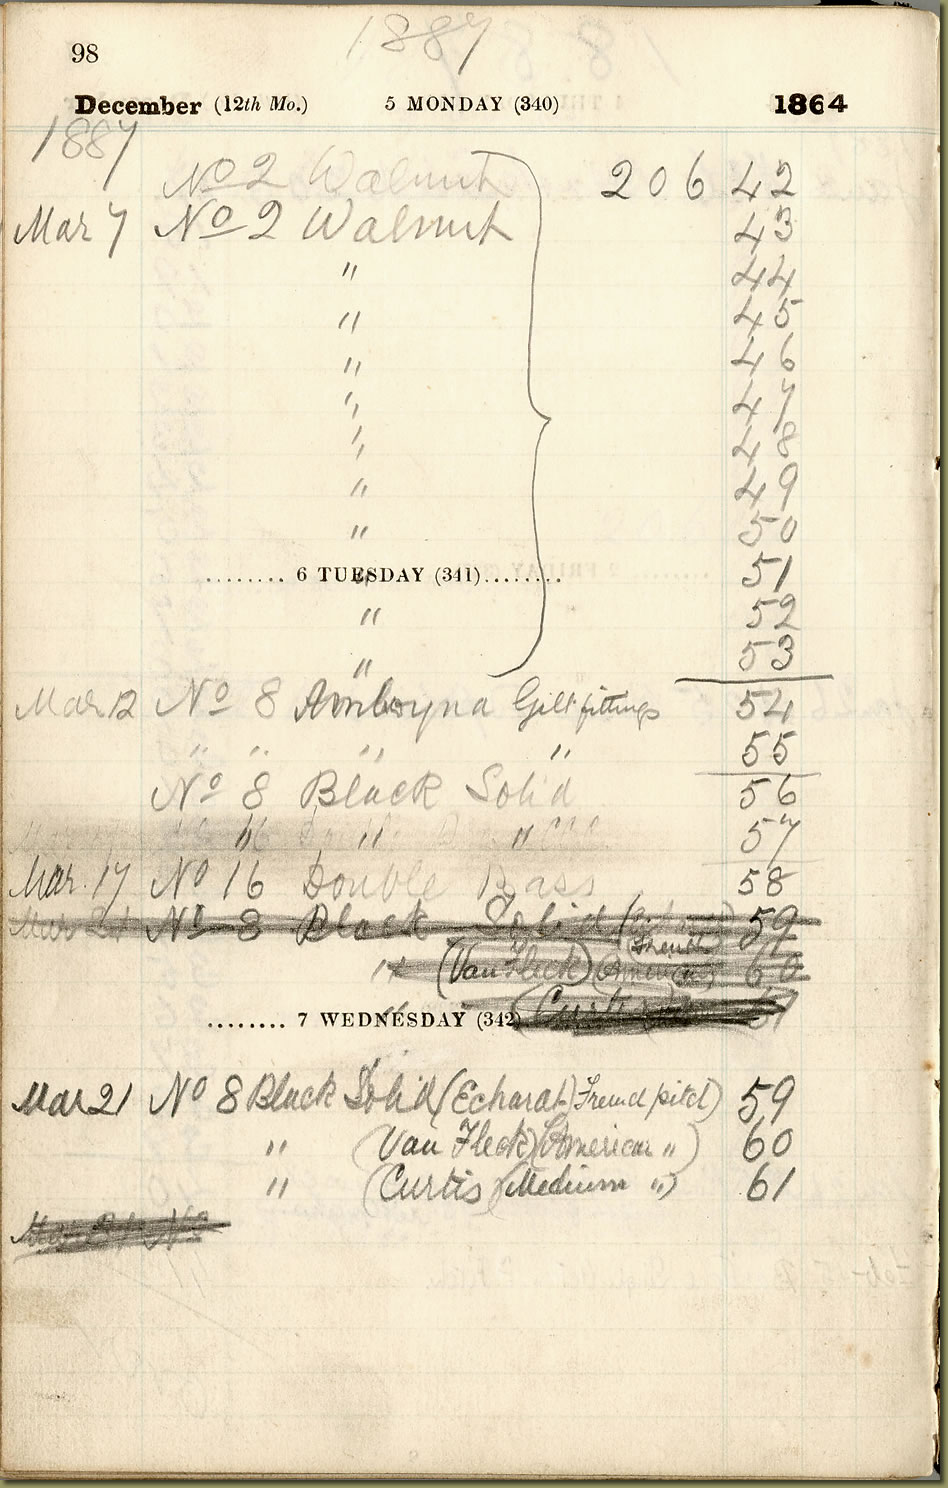 1887
98
December (12th Mo.) 5 MONDAY (340) 1864
1887
No 2 Walnut 20642
Mar 7 No 2 Walnut 43
" 44
" 45
" 46
" 47
" 48
" 49
" 50
........ 6 TUESDAY (341)........ 51
" 52
" 53
Mar 12 No 8 Amboyna Gilt fittings 54
" " " " 55
No 8 Black Solid 56
" " " 57
Mar. 17 No 16 Double Bass 58
Mar 21 No 8 Black Solid 59
(French)
" (Van Fleck) (American) 60
(Curtis 61
........ 7 WEDNESDAY (342)
Mar 21 No 8 Black Solid (Echardt) French pitch) 59
" (Van Fleck) (American ") 60
" (Curtis (Medium ") 61
No